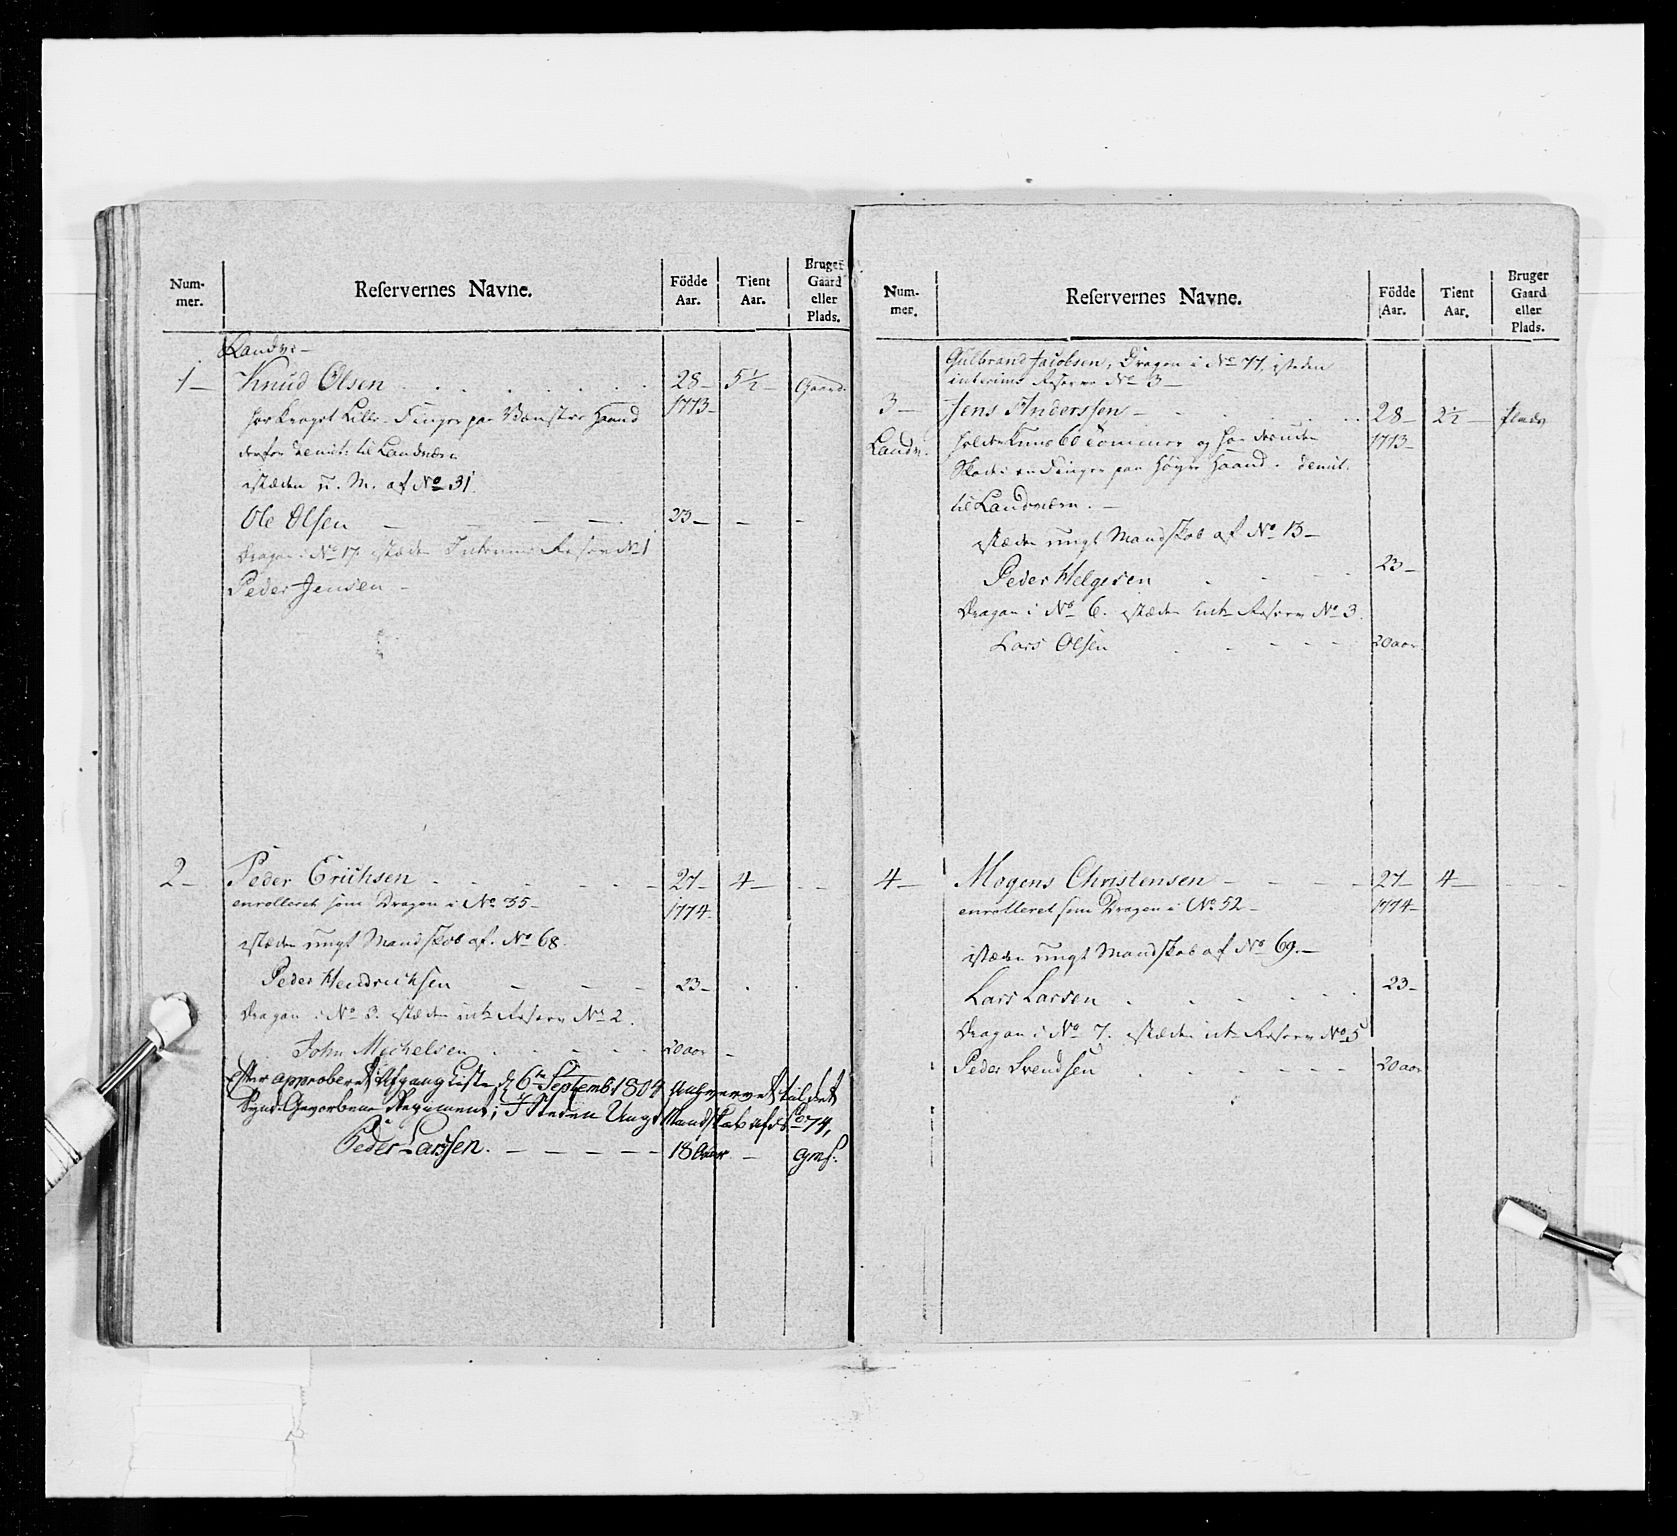 Num-
mer.
Reservernes Navne.
Födde
Aar.
Tient
Aar.
Bruger
Gaard
eller
Plads.
Landv:
1 — Knud Olsen 28 — 5½ — Gaard.
har knaget Lille Finger paa Venstre Haand 1773 —
derfor demit: til Landværn
istæden u. M. af No 31.
Ole Olsen — 23 — — —
Dragon i No 17 istæden Interims Reserv No 1
Peder Jensen —
2 — Peder Erichsen 27 — 4 — —
enrolleret som Dragon i No 35 — 1774
istæden ungt Mandskab af No 68.
Peder Hendrichsen — 23 —
Dragon i No 3. istæden int: Reserv No 2.
John Michelsen 20 aar —
Efter approberet Afgangs Liste d 6te Septemb 1804 til det
Gevorbene Regiment, i Steden Ungt Mandskab af No 74,
Peder Larssen. — — — — — 18 aar —
Num-
mer.
Reservernes Navne.
Födde
Aar.
Tient
Aar.
Bruger
Gaard
eller
Plads.
Gulbrand Jacobsen, Dragon i No 77, isteden
interims Reserve No 3 —
3 — Jens Anderssen — 28 — 2½ — plads
Landv. holder Kuns 60 Tommer og har desuden 1773 —
Skade i en Finger paa höyre Haand. demit.
til Landværn. —
istæden ungt Mandskab af No 13 —
Peder Helgesen 23 —
Dragon i No 6. istæden int: Reserv No 3.
Lars Olsen 20 aar
4 — Mogens Christensen — 27 — 4 — —
enrolleret som Dragon i No 52 — 1774 —
istæden ungt Mandskab af No 69. —
Lars Larsen 23 —
Dragon i No 7. istæden int: Reserv No 5
Peder Svendsen 20 aar